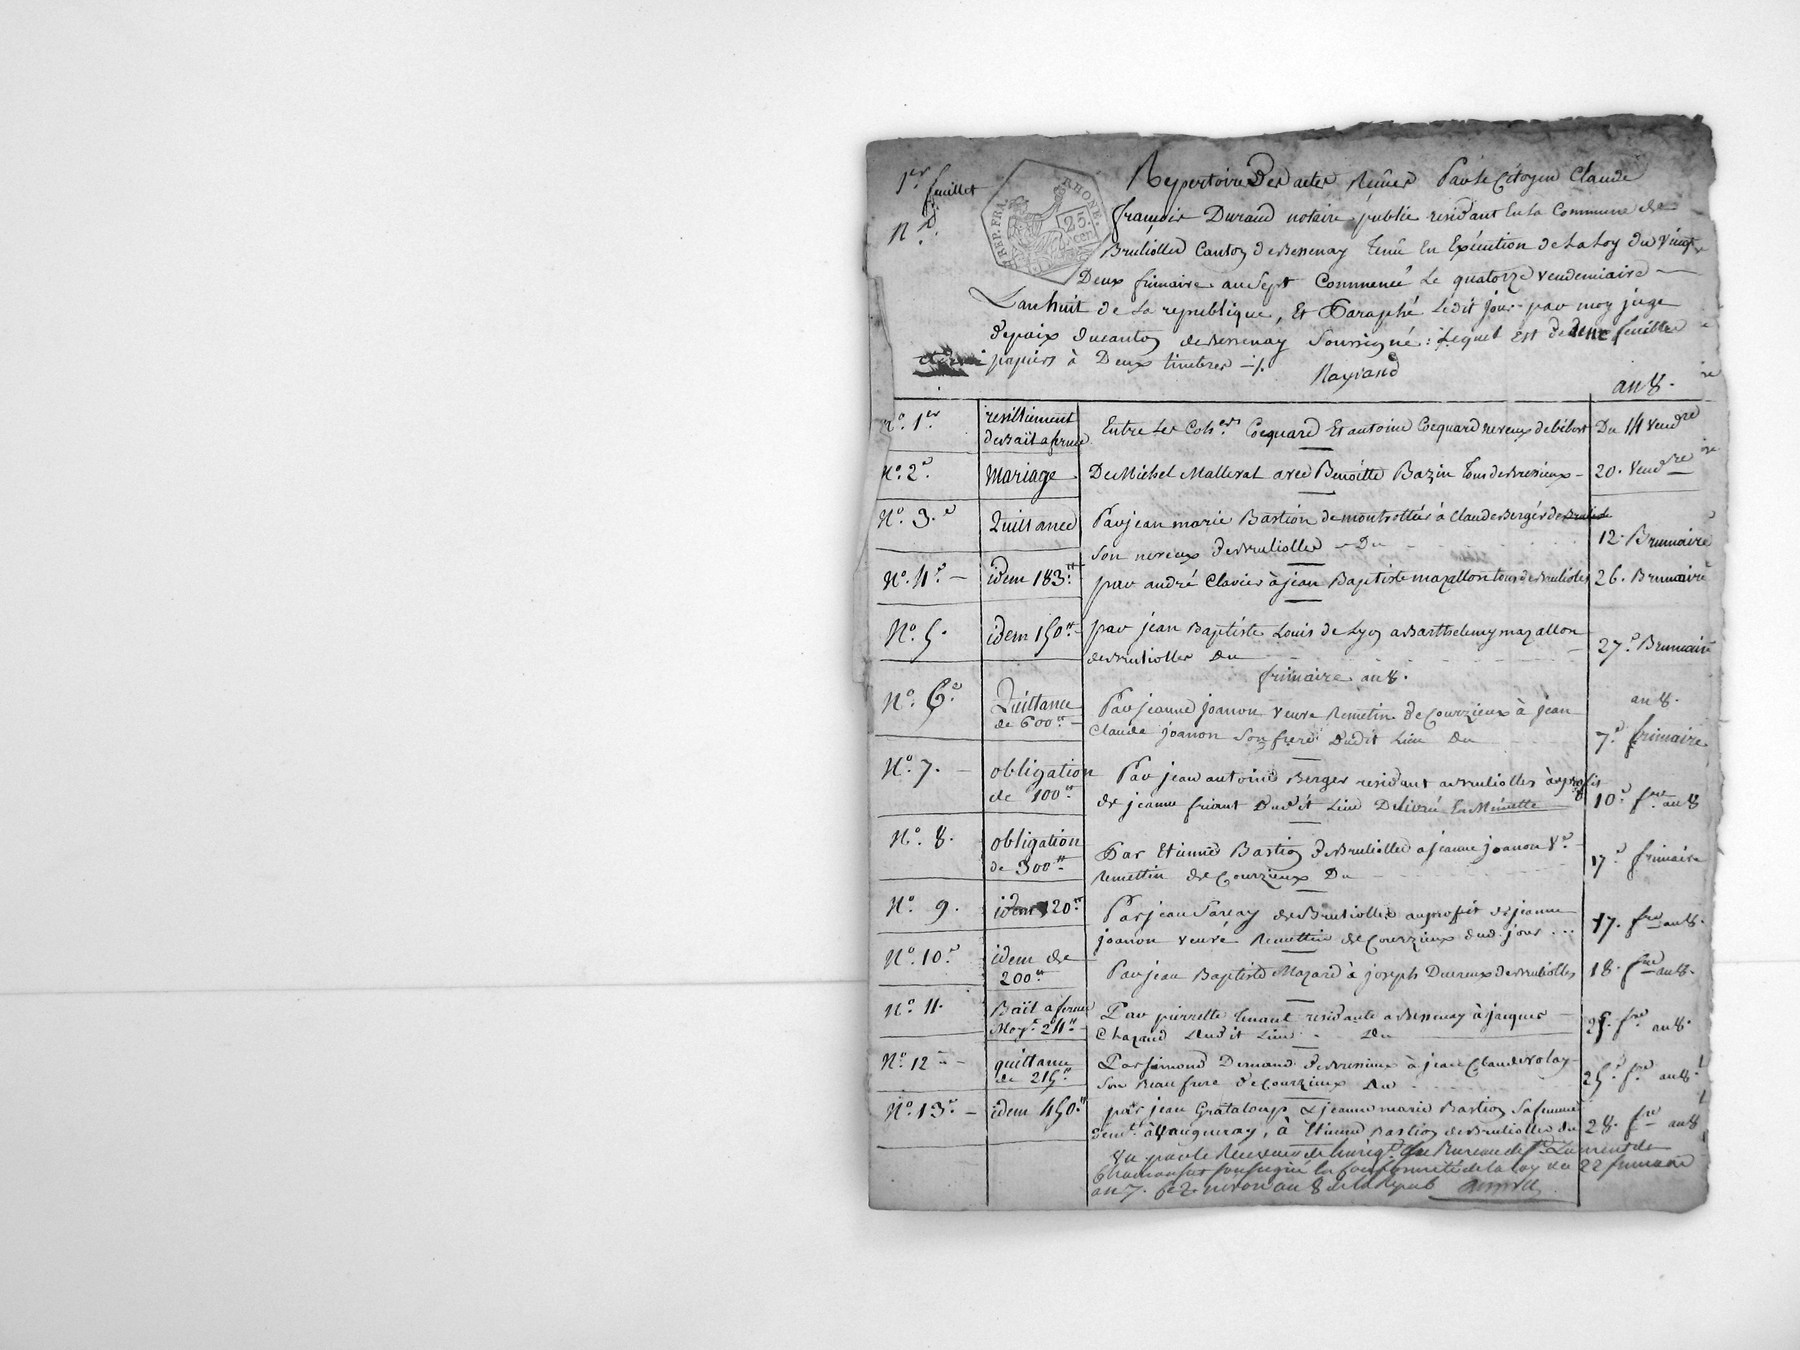 1er feuillet
RÉP. FRA.
RHONE.
25 cen
Repertoire Des actes Par le Citoyen Claude
françois Durand notaire public residant En la Commune de
Brullolles Canton de Bessenay tenu En Exécution de La Loy du Vingt
Deux frimaire an Sept Commencé Le quatorze vendemiaire
L'an huit de La republique, Et Paraphé Ledit jour par moy juge
de paix du canton de Bessenay Soussigné: Lequel Est de feuilles
papiers à Deux timbres
an 8.
No. 1er
resiliement
de Bail a ferme
Entre Les Coquard Et antoine Coquard neveux
Du 14 Vendre
No. 2e
Mariage
De Michel Mallerat avec Benoitte Bazin tous de Brussieux
20. Vendre
No. 3.e
Quittance
Par jean marie Bastion de montrottier à Claude Berger
son neveux de Brullolles Du
12. Brumaire
No. 4e.
idem 183.tt
par andré Clavier à jean Baptiste mazallon tous de Brullioles
26. Brumaire
No. 5.
idem 150tt
par jean Baptiste Louis de Lyon a Barthelemy mazallon
de Brullolles Du
27e Brumaire
frimaire an 8.
No. 6.e
Quittance
de 600tt
Par jeanne joanon veuve Remetin de Courzieux à jean
Claude joanon son frere Dudit Lieu Du
an 8.
7e frimaire
No. 7.
obligation
de 100tt
Par jean antoine Berger residant a Brullolles à profit
de jeanne Dudit Lieu Delivré En Minutte
10e fre an 8
No. 8.
obligation
de 300tt
Par Etienne Bastion de Brullolles a jeanne joanon Ve
Remettin de Courzieux Du
17e frimaire
No. 9.
idem 120tt
Par jean de Brullolles au profit de jeanne
joanon veuve Remettin de Courzieux dud. jour
17. fre an 8.
No. 10.e
idem de
200tt
Par jean Baptiste Mazard à joseph Ducreux de Brullolles
18. fre an 8.
No. 11.
Bail a ferme
Moyt 24tt
Par pierrette residante a Bessenay à jacques
Chazaud Dudit Lieu Du
25. fre an 8.
No. 12
quittance
de 215tt
Par Simond de Brussieux à jean Claude
son Beau frere de Courzieux Du
25. fre an 8.
No. 13.e
idem 450tt
par jean Grataloup & jeanne marie Bastion sa femme
demt. à Vaugneray, à Etienne Bastion de Brullolles du
28. fre an 8
Vu par le Receveur de l'enregt. du Bureau de St. Laurent de
Chamousset soussigné En Conformité de la Loy du 22 frimaire
an 7. Le 2 nivose an 8 de la Repub